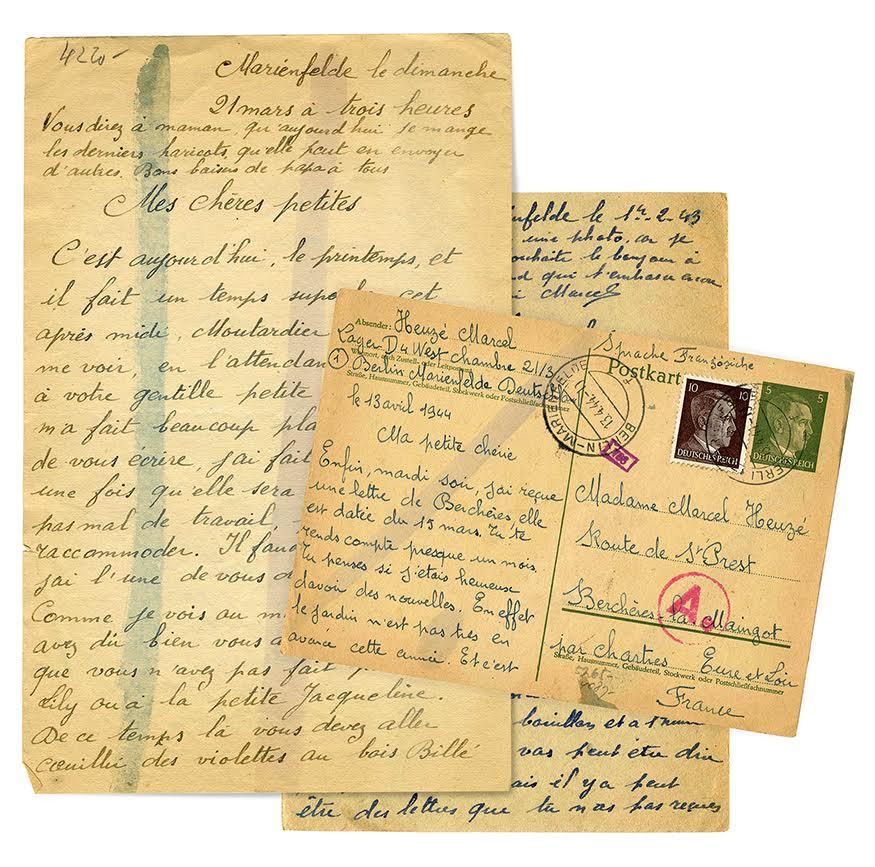 4220-
Marienfelde le dimanche
21 mars à trois heures
Vous direz à maman, qu'aujourd'hui je mange
les derniers haricots, qu'elle peut en envoyer
d'autres. Bons baisers de papa à tous
Mes chères petites
C'est aujourd'hui, le printemps, et
il fait un temps cet
après midi, Moutardier
me voir, en l'attendan
à votre gentille petite
m'a fait beaucoup pla
de vous écrire, j'ai fait
une fois qu'elle sera
pas mal de travail,
raccommoder. Il fau
j'ai l'une de vous
Comme je vois au m
avez dû bien vous a
que vous n'avez pas fait
Lily ou à la petite Jacqueline.
De ce temps là vous devez aller
cœuillir des violettes au bois Billé
nfelde le 1er-2-43
une photo, car je
ouhaite le bonjour à
d qui t'embrasse
Marcel
Absender: Heuzé Marcel
Lager D4 West chambre 21/3
Wohnort, auch Zustell- oder Leitpostamt
(1) Berlin Marienfelde Deutschlan
Straße, Hausnummer, Gebäudeteil, Stockwerk oder Postschließfachnummer
le 13 avril 1944
Ma petite chérie
Enfin, mardi soir, j'ai reçue
une lettre de Berchères elle
est datée du 15 mars. Tu te
rends compte presque un mois.
Tu penses si j'étais heureux
d'avoir des nouvelles. En effet
le jardin n'est pas très en
avance cette année. Et c'est
Sprache Französiche
Postkart
BERLIN-MARIENFELDE
13.4.44
10 10
DEUTSCHES REICH
5 5
DEUTSCHES REICH
Madame Marcel Heuzé
Route de St Prest
Berchères-la Maingot
A
par Chartres Eure et Loir
Straße, Hausnummer, Gebäudeteil, Stockwerk oder Postschließfachnummer
France
bouillon et a
vas peut être dire
ais il y a peut
être des lettres que tu n'as pas reçues